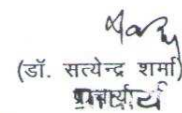 (डॉ. सत्येन्द्र शर्मा)
प्राचार्य